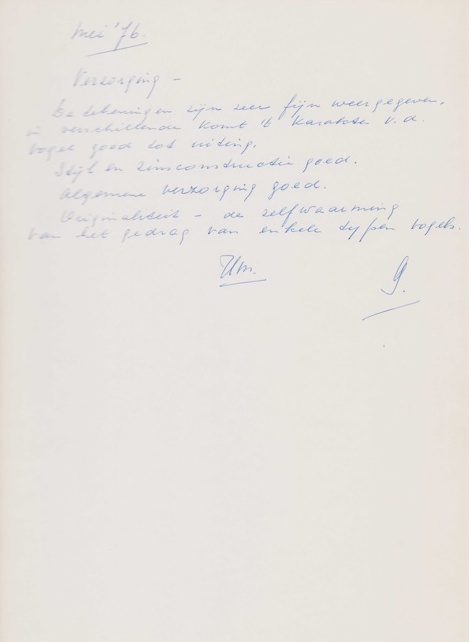 mei '76.
Verzorging –
De tekeningen zijn zeer fijn weergegeven,
in verschillende komt 't karakter v.d.
vogel goed tot uiting.
Stijl en zinsconstructie goed.
Algemene verzorging goed.
Originaliteit – de zelfwaarming
van het gedrag van enkele typen vogels.
G.